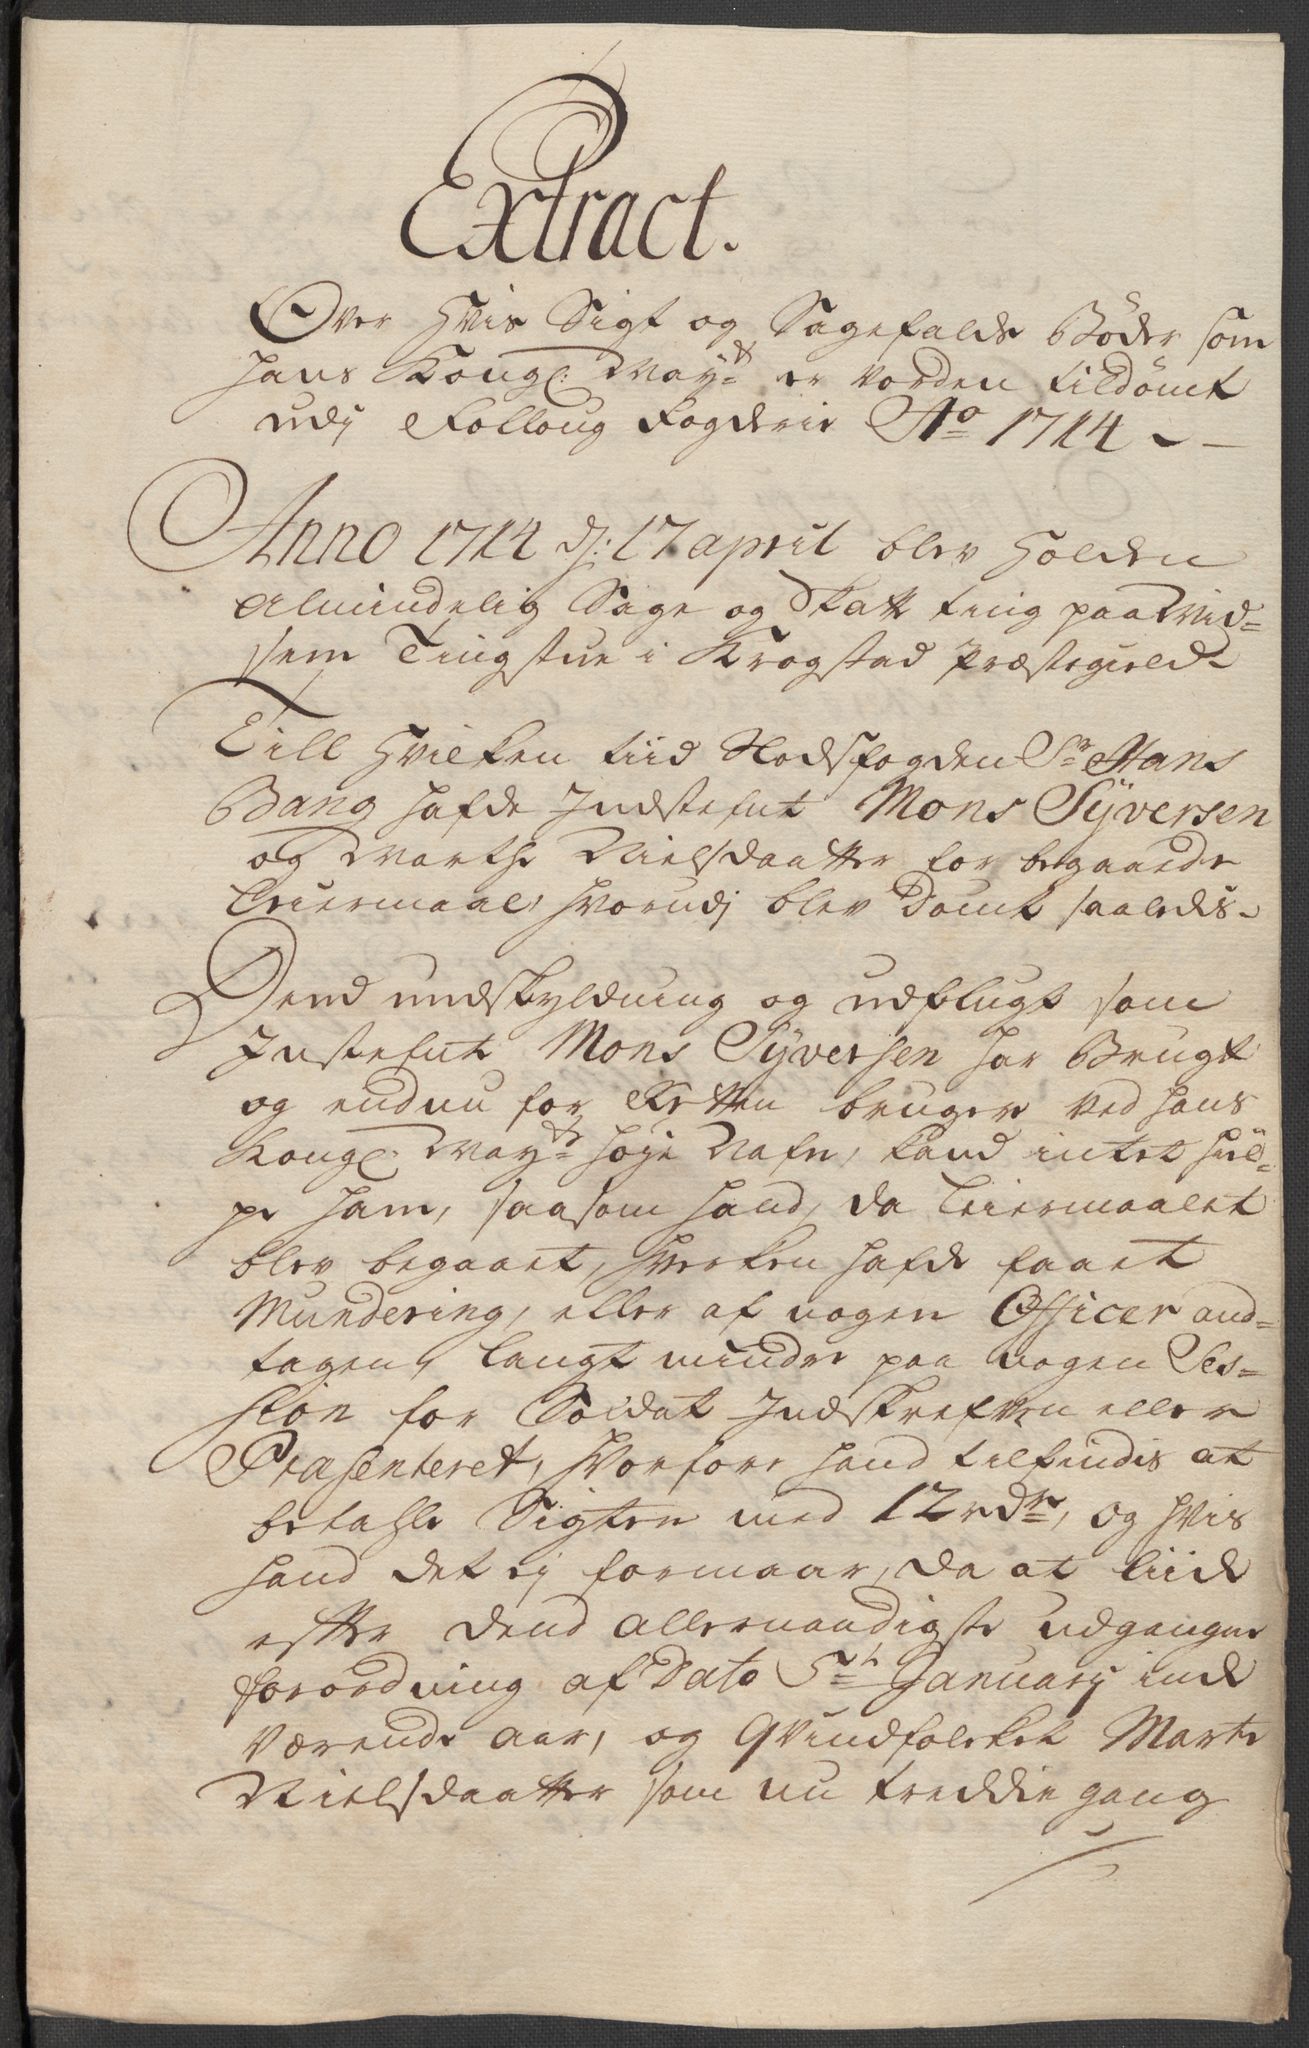 Extract.
Over Hvis Sigt og Sagefalds Bøder som
hans Kongl: May:ts er vorden tildømt
udj Folloug Fogderie Ao 1714
Anno 1714 d: 17 april blev holden
almindelig Sage og Skatte ting paa Mid=
sem Tingstue i Krogstad Præstegield
Till hvilken tiid Kodsfogden Sr Hans
Bang hafde Indstefnt Mons Syversen
og Marthe Nielsdaatter for begaaede
Leiermaal, hvorudj blev Dømt saaledis
Dend undskyldning og udflugt som
Instefnte Mons Syversen har Brugt
og endnu for Retten bruger ved hans
Kongl: May:ts høje Nafn, kand intet hiel=
pe ham, saasom hand, da Leiermaalet
blev begaaet, hverken hafde faaet
Mundering, eller af nogen Officer and=
tagen, langt mindre paa nogen Ses=
sion for Soldat Indskrefven eller
Præsenteret, hvorfore hand tilfindis at
betahle Sigten med 12 rdr, og hvis
hand det ej formaar, da at liide
efter dend allernaadigste udgangne
forordning af Dato 5te January inde
værende aar, og Qvindfolcket Marte
Nielsdaatter som nu treddie gang